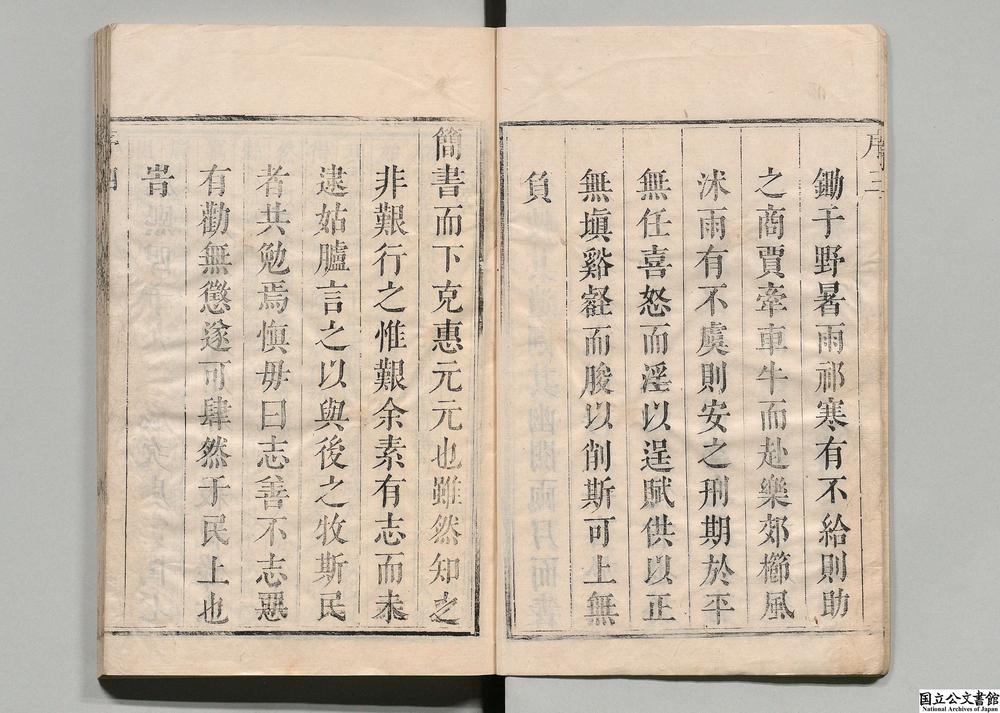 序三
鋤于野暑雨祁寒有不給則助
之商賈牽車牛而赴樂郊櫛風
沐雨有不虞則安之刑期於平
無任喜怒而淫以逞賦供以正
無塡谿壑而朘以削斯可上無
負
簡書而下克惠元元也雖然知之
非艱行之惟艱余素有志而未
逮姑臚言之以與後之牧斯民
者共勉焉愼毋曰志善不志惡
有勸無懲遂可肆然于民上也
旹
序四
国立公文書館
National Archives of Japan